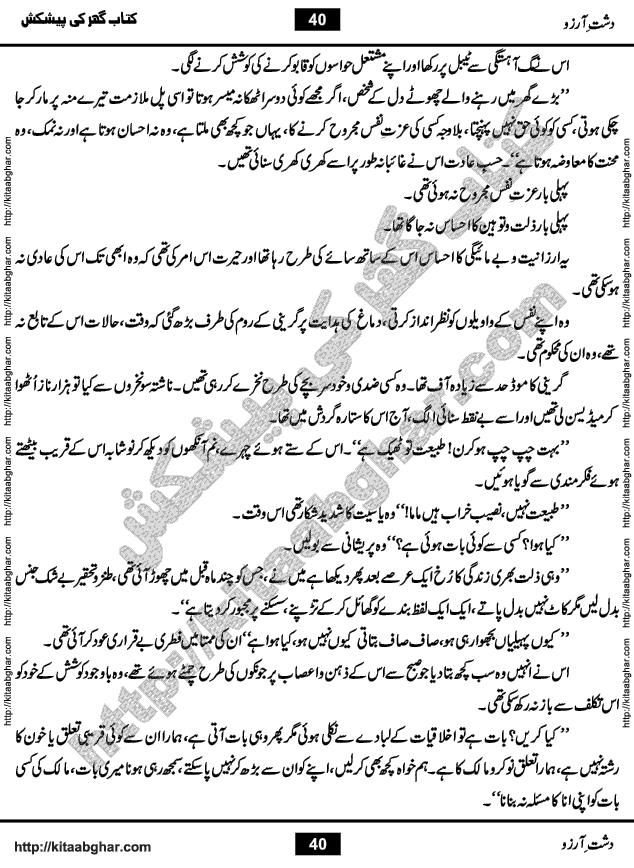 کتاب گھر کی پیشکش 40 دشتِ آرزو
اس نے مگ آہستگی سے ٹیبل پر رکھا اور اپنے مشتعل حواسوں کو قابو کرنے کی کوشش کرنے لگی۔
’’بڑے گھر میں رہنے والے چھوٹے دل کے شخص، اگر مجھے کوئی دوسرا ٹھکانہ میسر ہوتا تو اسی پل ملازمت تیرے منہ پر مار کر جا
چکی ہوتی، کسی کو کوئی حق نہیں پہنچتا، بلاوجہ کسی کی عزتِ نفس مجروح کرنے کا، یہاں جو کچھ بھی ملتا ہے، وہ نہ احسان ہوتا ہے اور نہ نمک، وہ
محنت کا معاوضہ ہوتا ہے‘‘۔ حسبِ عادت اس نے غائبانہ طور پر اسے کھری کھری سنائی تھیں۔
پہلی بار عزتِ نفس مجروح نہ ہوئی تھی۔
پہلی بار ذلت و توہین کا احساس نہ جاگا تھا۔
یہ ارزانیت و بے مائیگی کا احساس اس کے ساتھ سائے کی طرح رہا تھا اور حیرت اس امر کی تھی کہ وہ ابھی تک اس کی عادی نہ
ہو سکی تھی۔
وہ اپنے نفس کے واویلوں کو نظر انداز کرتی، دماغ کی ہدایت پر گرینی کے روم کی طرف بڑھ گئی کہ وقت، حالات اس کے تابع نہ
تھے، وہ ان کی محکوم تھی۔
گرینی کا موڈ حد سے زیادہ آف تھا۔ وہ کسی ضدی و خود سر بچے کی طرح نخرے کر رہی تھیں۔ ناشتہ سو نخروں سے کیا تو ہزار ناز اُٹھوا
کر میڈیسن لی تھیں اور اسے بے نقط سنائی الگ، آج اس کا ستارہ گردش میں تھا۔
’’بہت چپ چپ ہو کرن! طبیعت تو ٹھیک ہے‘‘۔ اس کے ستے ہوئے چہرے، نم آنکھوں کو دیکھ کر نوشابہ اس کے قریب بیٹھتے
ہوئے فکرمندی سے گویا ہوئیں۔
’’طبیعت نہیں، نصیب خراب ہیں ماما!‘‘ وہ یاسیت کا شدید شکار تھی اس وقت۔
’’کیا ہوا؟ کسی سے کوئی بات ہوئی ہے؟‘‘ وہ پریشانی سے بولیں۔
’’وہی ذلت بھری زندگی کا رُخ ایک عرصے بعد پھر دیکھا ہے میں نے، جس کو چند ماہ قبل میں چھوڑ آئی تھی، طنز و تحقیر بے شک جنس
بدل لیں مگر کاٹ نہیں بدل پاتے، ایک ایک لفظ بندے کو گھائل کر کے تڑپنے، سسکنے پر مجبور کر دیتا ہے‘‘۔
’’کیوں پہیلیاں بجھوا رہی ہو، صاف صاف بتاتی کیوں نہیں ہو، کیا ہوا ہے‘‘ ان کی ممتا میں فطری بے قراری عود کر آئی تھی۔
اس نے انہیں وہ سب کچھ بتا دیا جو صبح سے اس کے ذہن و اعصاب پر جونکوں کی طرح چمٹے ہوئے تھے، وہ باوجود کوشش کے خود کو
اس تکلف سے باز نہ رکھ سکی تھی۔
’’کیا کریں؟ بات ہے تو اخلاقیات کے لبادے سے نکلی ہوئی مگر پھر وہی بات آتی ہے، ہمارا ان سے کوئی قریبی تعلق یا خون کا
رشتہ نہیں ہے، ہمارا تعلق نوکر و مالک کا ہے۔ ہم خواہ کچھ بھی کر لیں، اپنے کو ان سے بڑھ کر نہیں پا سکتے، سمجھ رہی ہو نا میری بات، مالک کی کسی
بات کو اپنی انا کا مسئلہ نہ بنانا‘‘۔
http://kitaabghar.com 40 دشتِ آرزو
http://kitaabghar.com
http://kitaabghar.com
http://kitaabghar.com
http://kitaabghar.com
http://kitaabghar.com
http://kitaabghar.com
http://kitaabghar.com
http://kitaabghar.com
http://kitaabghar.com
http://kitaabghar.com
http://kitaabghar.com
http://kitaabghar.com
کتاب گھر کی پیشکش
http://kitaabghar.com